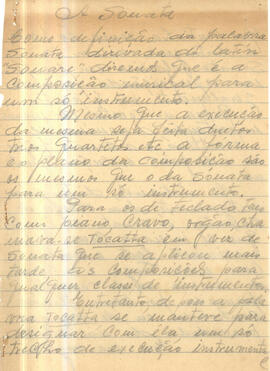 A Sonata
Como definição da palabra
Sonata dirivada do latin
"Sonare" diremos que é a
composição musical para
um só instrumento.
Mesmo que a execução
da mesma seja feita duetos
trios quartetos, etc a forma
e o plano da composição são
os mesmos que o da Sonata
para um só instrumento.
Para os de teclado,
como piano, Cravo, orgão, cha
mava-se Tocatta em vez de
Sonata que se aplicou mais
tarde as composições para
qualquer classe de instrumento.
Entretanto depois a pala
vra Tocatta se manteve para
designar com ela um só
trecho de execução instrumenta